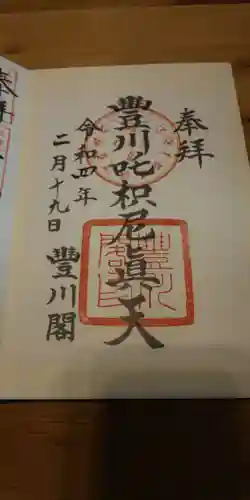 奉拝
豐川吒枳尼眞天
令和四年
二月十九日
豐川閣
奉拝